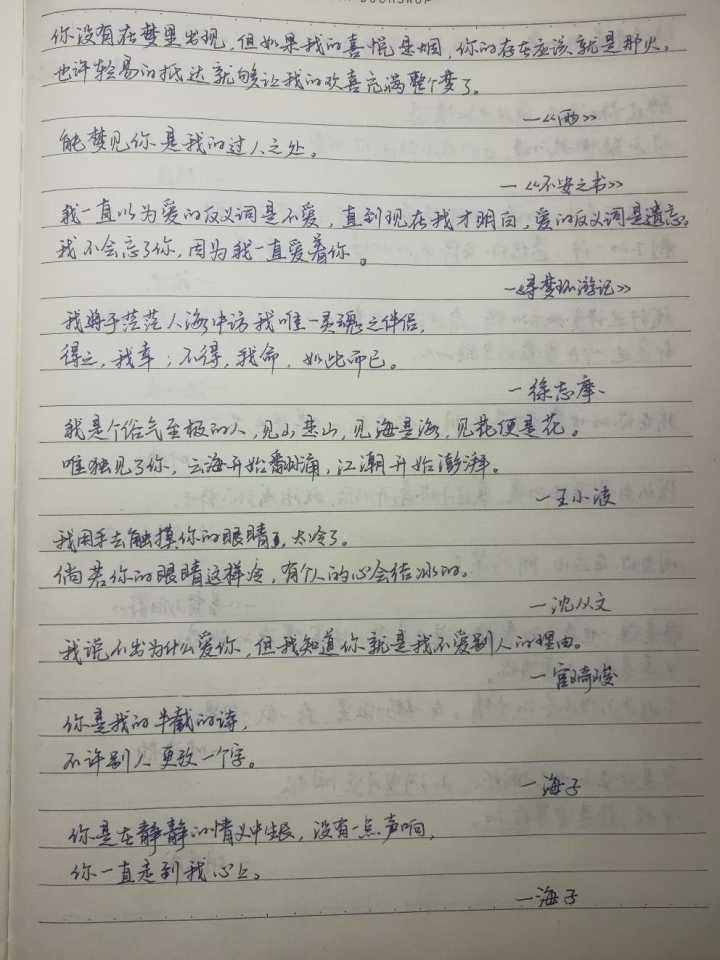 你没有在梦里出现,但如果我的喜悦是烟,你的存在应该就是那火,
也许轻易的抵达就够让我的欢喜充满整个梦了。
—《雨》
能梦见你是我的过人之处。
—《不安之书》
我一直以为爱的反义词是不爱,直到现在我才明白,爱的反义词是遗忘。
我不会忘了你,因为我一直爱着你。
—《寻梦环游记》
我将于茫茫人海中访我唯一灵魂之伴侣,
得之,我幸;不得,我命,如此而已。
—徐志摩
我是个俗气至极的人,见山是山,见海是海,见花便是花。
唯独见了你,云海开始翻涌,江潮开始澎湃。
—王小波
我用手去触摸你的眼睛,太冷了。
倘若你的眼睛这样冷,有个人的心会结冰的。
—沈从文
我说不出为什么爱你,但我知道你就是我不爱别人的理由。
—宫崎骏
你是我的半截的诗,
不许别人更改一个字。
—海子
你是在静静的情义中生长,没有一点声响,
你一直走到我心上。
—海子